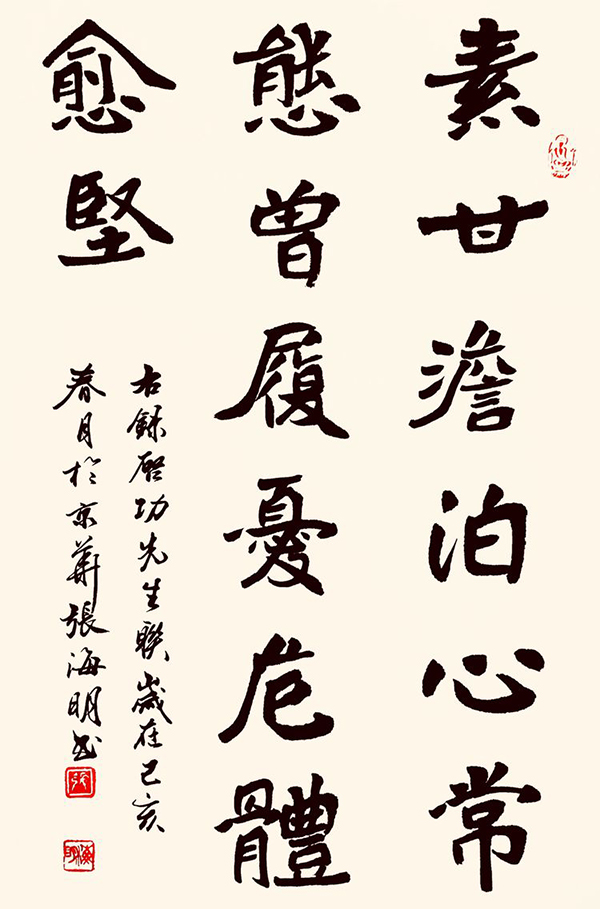 素甘澹泊心常
態曾履憂危體
愈堅
右録啓功先生聯歲在己亥
春月於京華張海明書